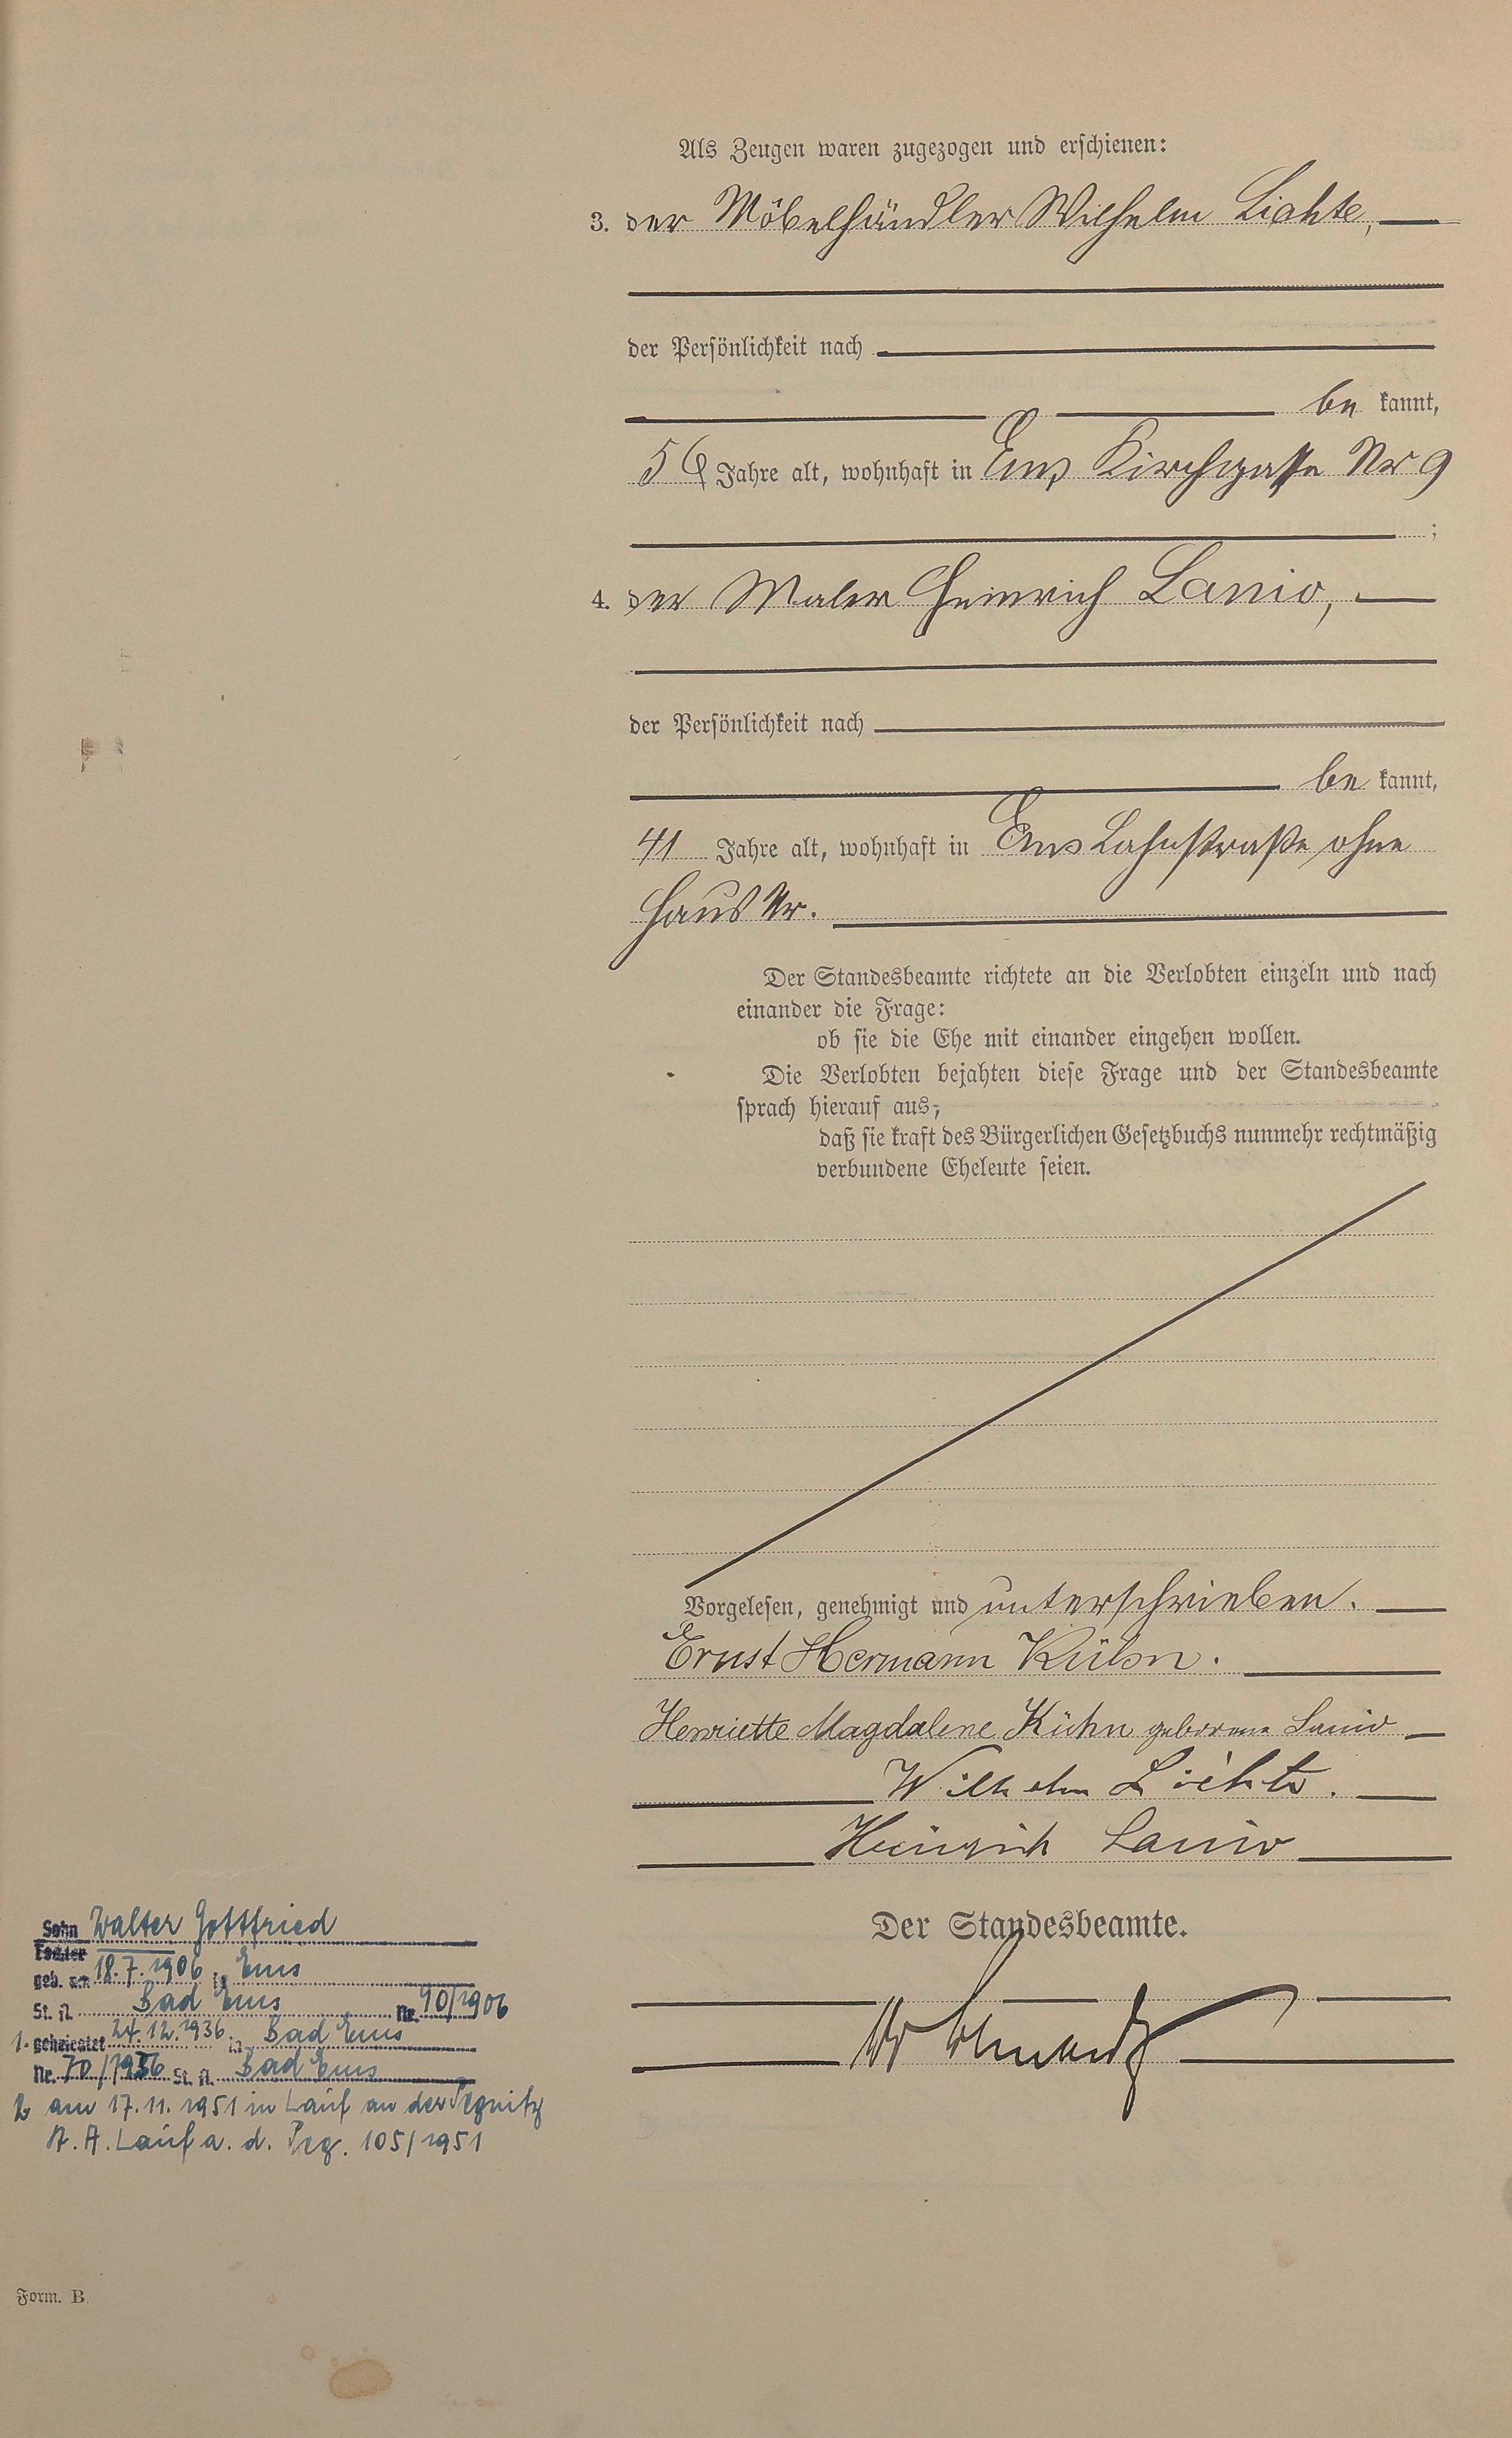 Als Zeugen waren zugezogen und erschienen:
3. der Möbelhändler Wilhelm Lichte,
der Persönlichkeit nach
be kannt,
56 Jahre alt, wohnhaft in Ems Kirchgasse Nr 9
;
4. der Maler Heinrich Lanio,
der Persönlichkeit nach
be kannt,
41 Jahre alt, wohnhaft in Ems Lahnstraße ohne
Haus Nr.
Der Standesbeamte richtete an die Verlobten einzeln und nach
einander die Frage:
ob sie die Ehe mit einander eingehen wollen.
Die Verlobten bejahten diese Frage und der Standesbeamte
sprach hierauf aus,
daß sie kraft des Bürgerlichen Gesetzbuchs nunmehr rechtmäßig
verbundene Eheleute seien.
Vorgelesen, genehmigt und unterschrieben.
Ernst Hermann Kühn.
Henriette Magdalene Kühn geborene Lanio
Wilhelm Lichte.
Heinrich Lanio
Der Standesbeamte.
Sohn Walter Gottfried
Tochter
geb. am 18.7.1906 in Ems
St. A. Bad Ems Nr. 90/1906
1. geheiratet 24.12.1936 in Bad Ems
Nr. 70/1936 St. A. Bad Ems
2 am 17.11.1951 in Lauf an der Pegnitz
St. A. Lauf a. d. Peg. 105/1951
Form. B.